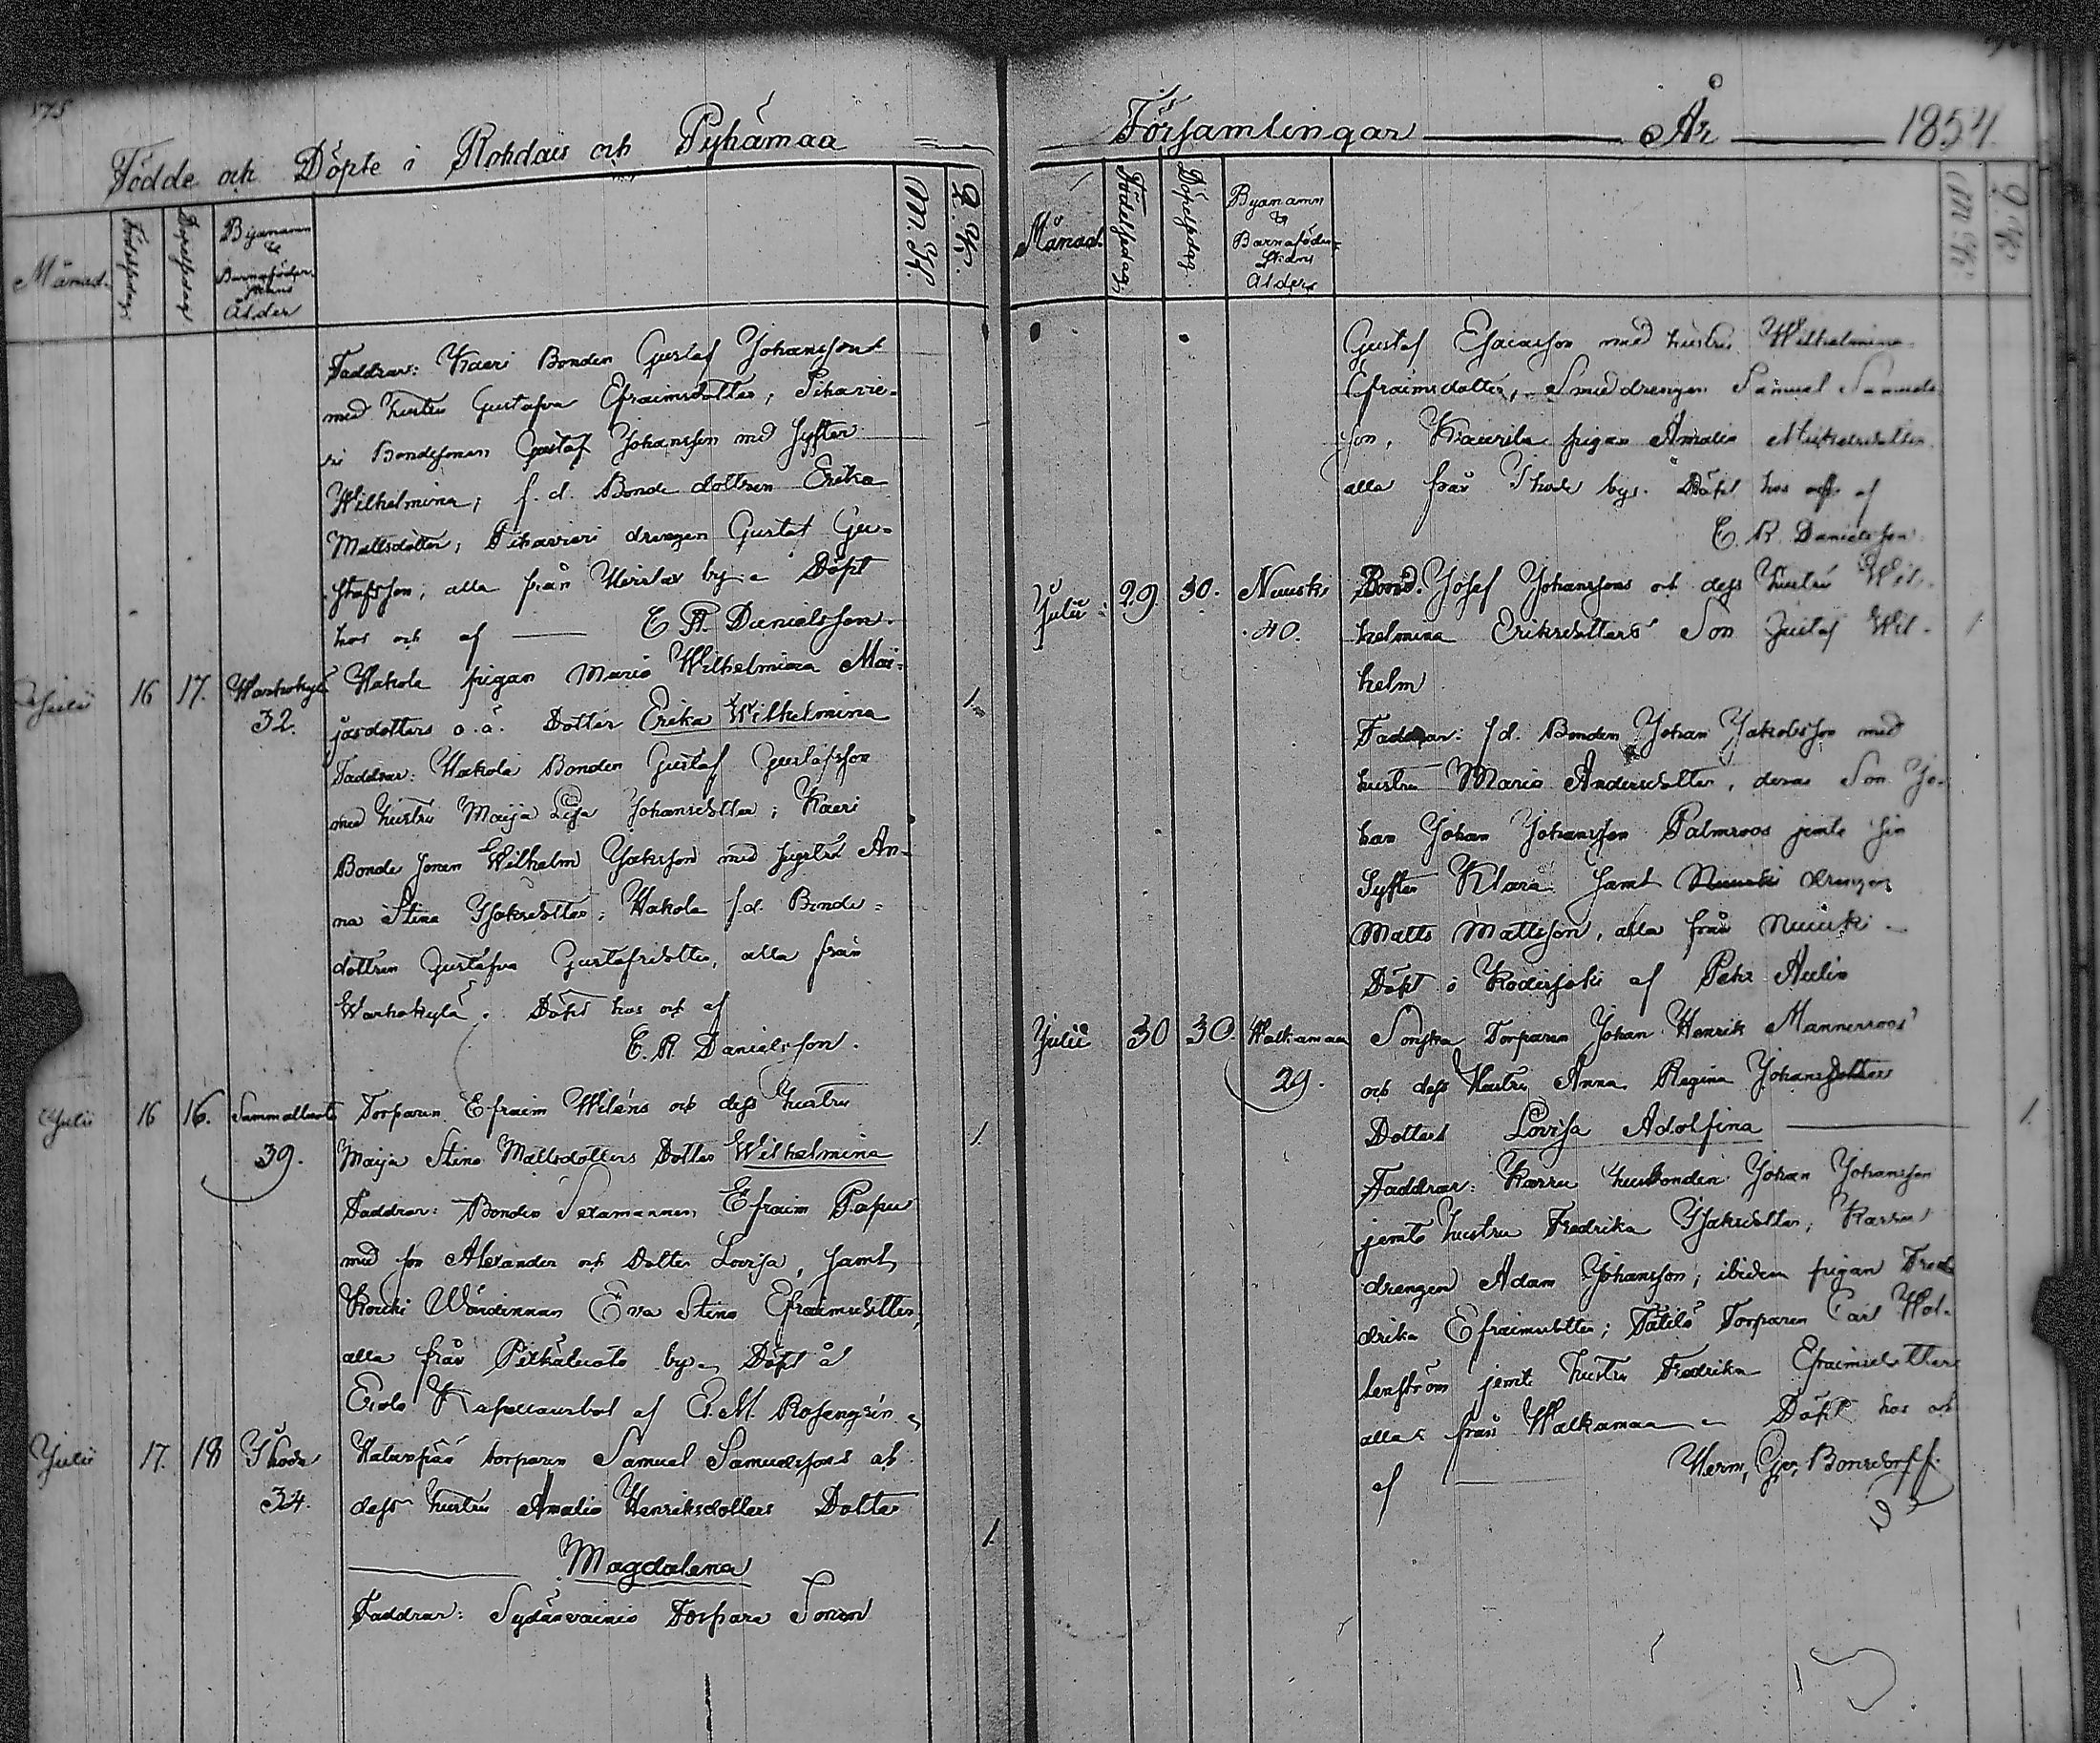 175
Födde och Döpte i Rohdais och Pyhämaa
Månad.
Födelsedag.
Döpelsedag
Byanamn
&
Barnaföder-
skans
Ålder
M. K.
Q. K.
Faddrar: Kaeri Bonden Gustaf Johansson
med hustru Gustafva Efraimsdotter; Pihavie-
ri Bondesonen Gustaf Johansson med syster
Wilhelmina; f. d. Bonde dottren Erika
Mattsdotter; Pihavieri drengen Gustaf Gu-
stafsson; alla från by. Döpt
hos och af — E. R. Danielsson.
Julii 16 17. Warhokylä
32.
Hakola pigan Maria Wilhelmina Mai-
jasdotters o. ä. Dotter Erika Wilhelmina 1.
Faddrar: Hakola Bonden Gustaf Gustafsson
med hustru Maija Lisa Johansdotter; Kaeri
Bonde sonen Wilhelm Isaksson med hustru An-
na Stina Isaksdotter; Hakola f.d. Bonde-
dottren Gustafva Gustafsdotter, alla från
Warhokylä. Döpt hos och af
E. R. Danielsson.
Julii 16 16. Sammalluoto
39.
Torparen Efraim Wiléns och dess hustru
Maija Stina Mattsdotters Dotter Wilhelmina 1.
Faddrar: Bonden Sexmannen Efraim Papu
med son Alexander och Dotter Lovisa, samt
Eva Stina Efraimsdotter,
alla från Pitkäluoto by. Döpt å
Kapellansbol af E. M. Rosengrén.
Julii 17. 18 Ihode
34.
torparen Samuel Samuelssons och
dess hustru Amalia Henriksdotters Dotter
Magdalena 1.
Faddrar: Sydänvainio Torpare Sonen
Församlingar — År — 1854.
Månad.
Födelsedag.
Döpelsedag.
Byanamn
&
Barnaföder-
skans
Ålder
M. K.
Q. K.
Gustaf Esaiasson med hustru Wilhelmina
Efraimsdotter, Smeddrengen Samuel Samuels-
son, Kaurila pigan Amalia Michelsdotter
alla från Ihode by. Döpt hos och af
E. R. Danielsson.
Julii 29 30. Nuuski
40.
Bond. Josef Johanssons och dess hustru Wil-
helmina Eriksdotters Son Gustaf Wil- 1
helm
Faddrar: f.d. Bonden Johan Jakobsson med
hustru Maria Andersdotter, deras Son Jo-
han Johan Johansson Palmroos jemte sin
Syster Klara. samt Nuuski drengen
Matts Mattsson, alla från Nuuski.
Döpt i Rödersoki af Pehr Aulin
Julii 30 30. Walkamaa
29.
Torparen Johan Henrik Mannerroos'
och dess Hustru Anna Regina Johansdotters
Dotter Lovisa Adolfina — 1.
Faddrar: Karru husbonden Johan Johansson
jemte hustru Fredrika Isaksdotter; Karru
drengen Adam Johansson; ibidem pigan Fred-
drika Efraimsdotter; Tätilä Torparen Carl Wal-
lenström jemte hustru Fredrika Efraimsdotter
alla från Walkamaa. Döpt hos och
af — Herm. Bonsdorff.